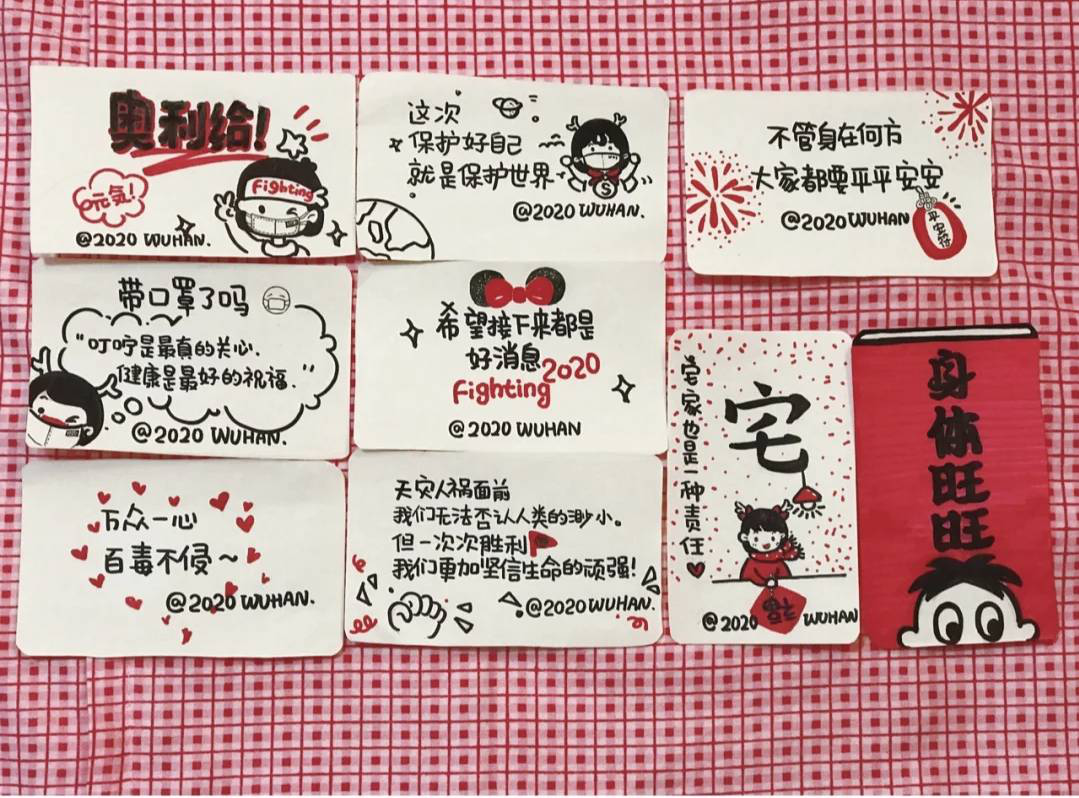 奥利给!
Fighting
元气!
@2020 WUHAN.
这次
保护好自己
就是保护世界
S
@2020 WUHAN.
不管身在何方
大家都要平平安安
@2020 WUHAN
平安符
带口罩了吗
"叮咛是最真的关心.
健康是最好的祝福."
@2020 WUHAN.
希望接下来都是
好消息2020
Fighting
@2020 WUHAN
宅家也是一种责任
宅
福
@2020 WUHAN
身体旺旺
万众一心
百毒不侵~
@2020 WUHAN.
天灾人祸面前
我们无法否认人类的渺小。
但一次次胜利
我们更加坚信生命的顽强!
@2020 WUHAN.